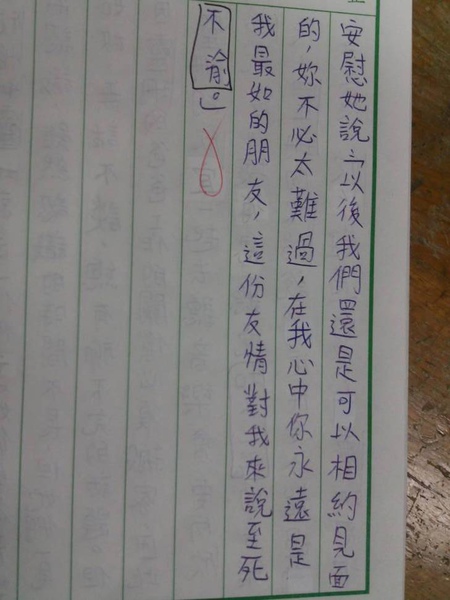 安慰她說:「以後我們還是可以相約見面
的,妳不必太難過,在我心中你永遠是
我最如的朋友,這份友情對我來說至死
不渝」。